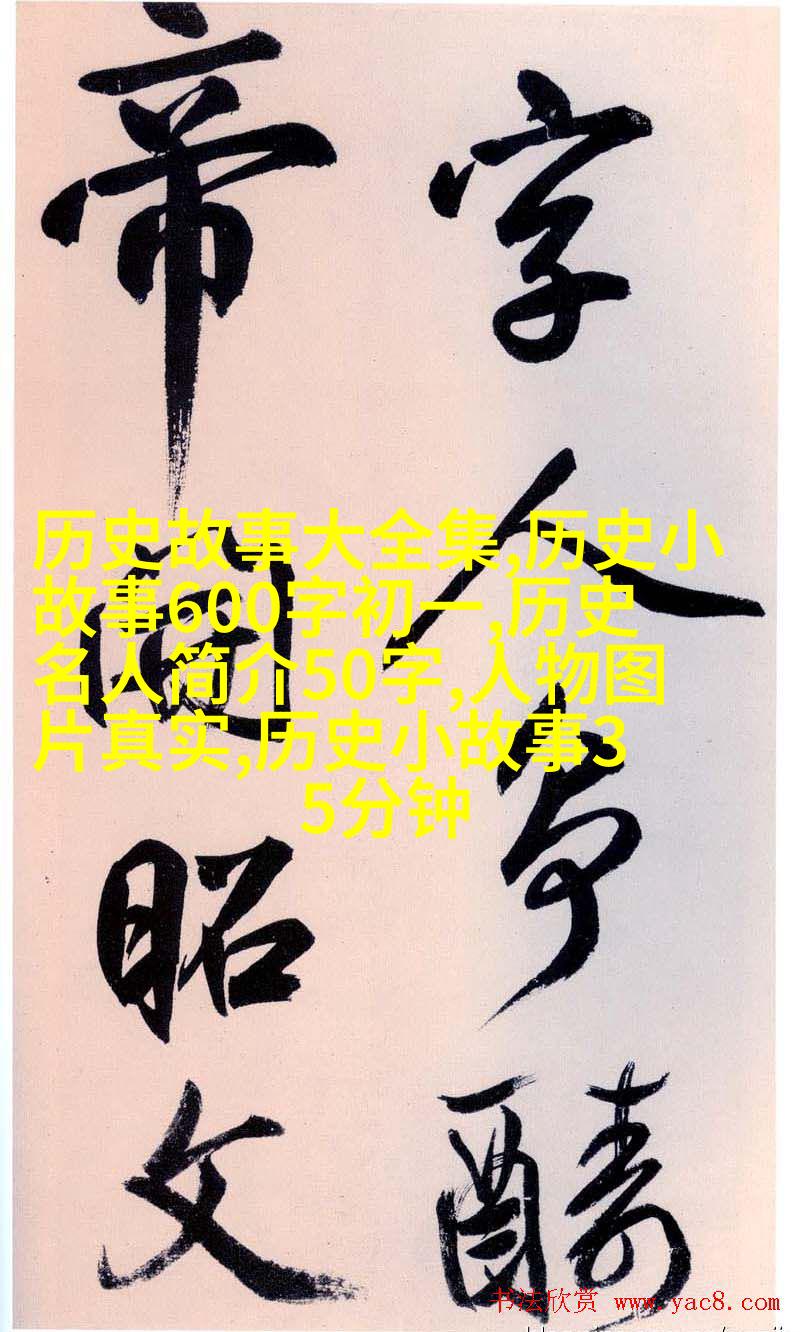 字人争醻
帝昭文
历史故事大全集,历史小
故事600字初一,历史
名人简介50字,人物图
片真实,历史小故事3
5分钟
书法欣赏 www.yac8.com